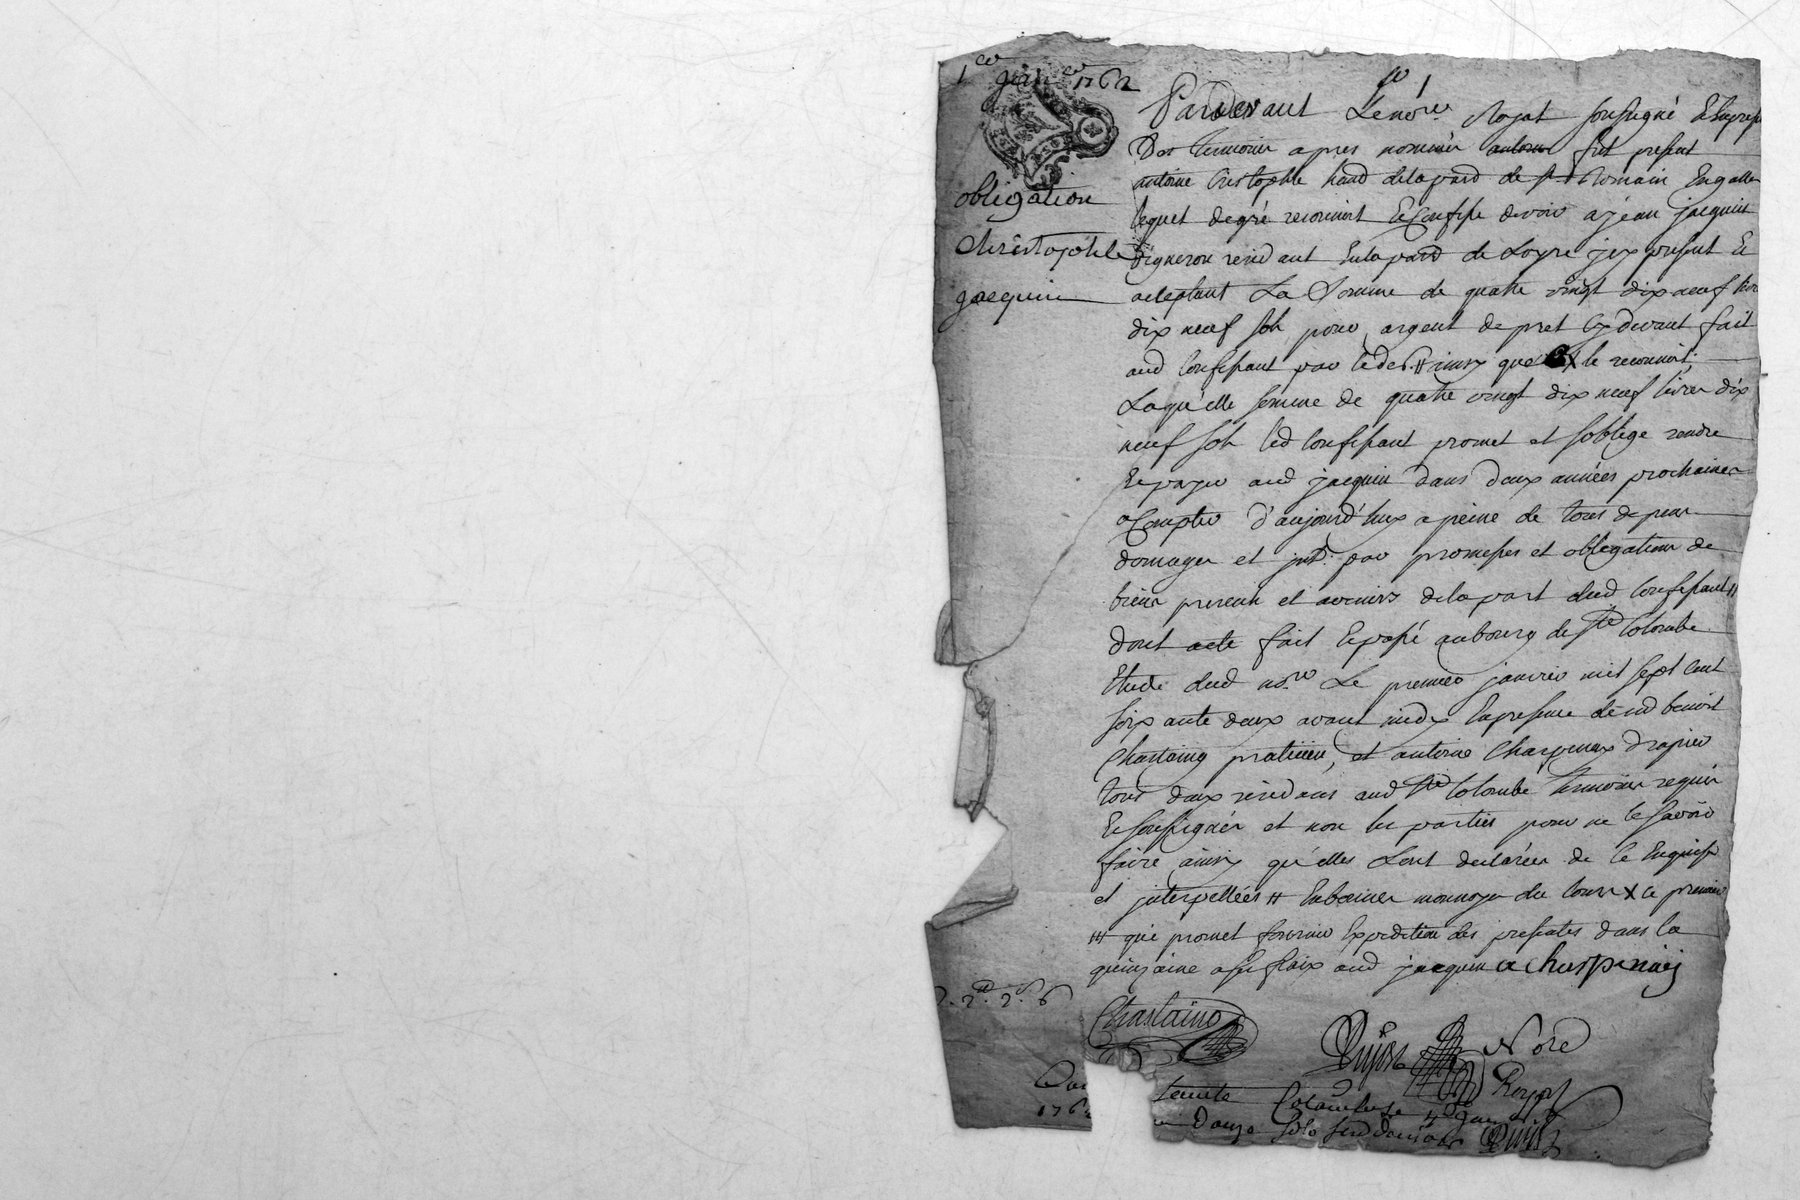 1er janer 1762
obligation
christophle
jacquin
Pardevant Le no.re Royal soussigné Et En presence
Des temoins apres nommés autom fut present
antoine Cristophle hand dela parr de st Romain En gallet
lequel degré reconnoit Et Confesse devoir a jean jacquin
vigneron residant En la parr de Loyre jcy present Et
acceptant La Somme de quatre vingt dix neuf livres
dix neuf sols pour argent de pret cy devant fait
aud confessant par led # ainsy que le reconnoit
Laquelle somme de quatre vingt dix neuf livres dix
neuf sols led confessant promet et soblige rendre
Et payer aud jacquin dans deux années prochaines
a Compter d'aujourd'huy a peine de tous depens
domages et jnts. par promesses et obligations de
biens presens et avenirs dela part dud confessant #
dont acte fait Et passé au bourg de Ste Colombe
Etude dud no.re Le premier janvier mil sept cent
soixante deux avant midy En presence de benoit
Chastaing praticien, et antoine Charpenay drapier
tous deux residans aud Ste Colombe temoins requis
Et soussignés et non les parties pour ne le savoir
faire ainsy qu'elles Lont declarées de ce Enquises
et jnterpellées # En bonnes monnoye du cours X ce premier
### que promet fournir Expedition des presentes dans la
quinzaine a ses fraix aud jacquin a charpenay
Chastaing
Nore
Royal
1762
Douze sols